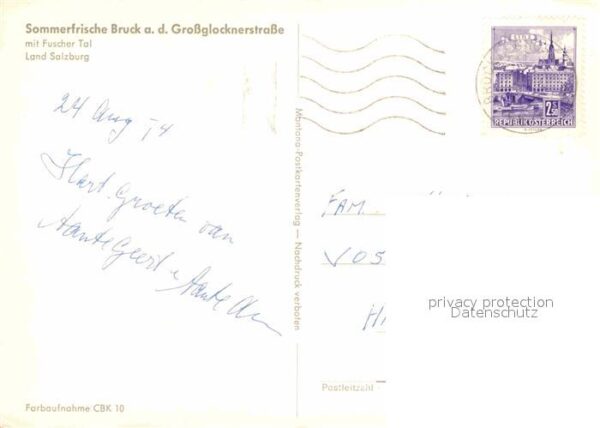 Sommerfrische Bruck a. d. Großglocknerstraße
mit Fuscher Tal
Land Salzburg
24 Aug
Hart. Groeten van
Tante Geert
Tante
Farbaufnahme CBK 10
Montana-Postkartenverlag — Nachdruck verboten
LINZ
2.50
REPUBLIK ÖSTERREICH
FAM.
VOS
HA
privacy protection
Datenschutz
Postleitzahl